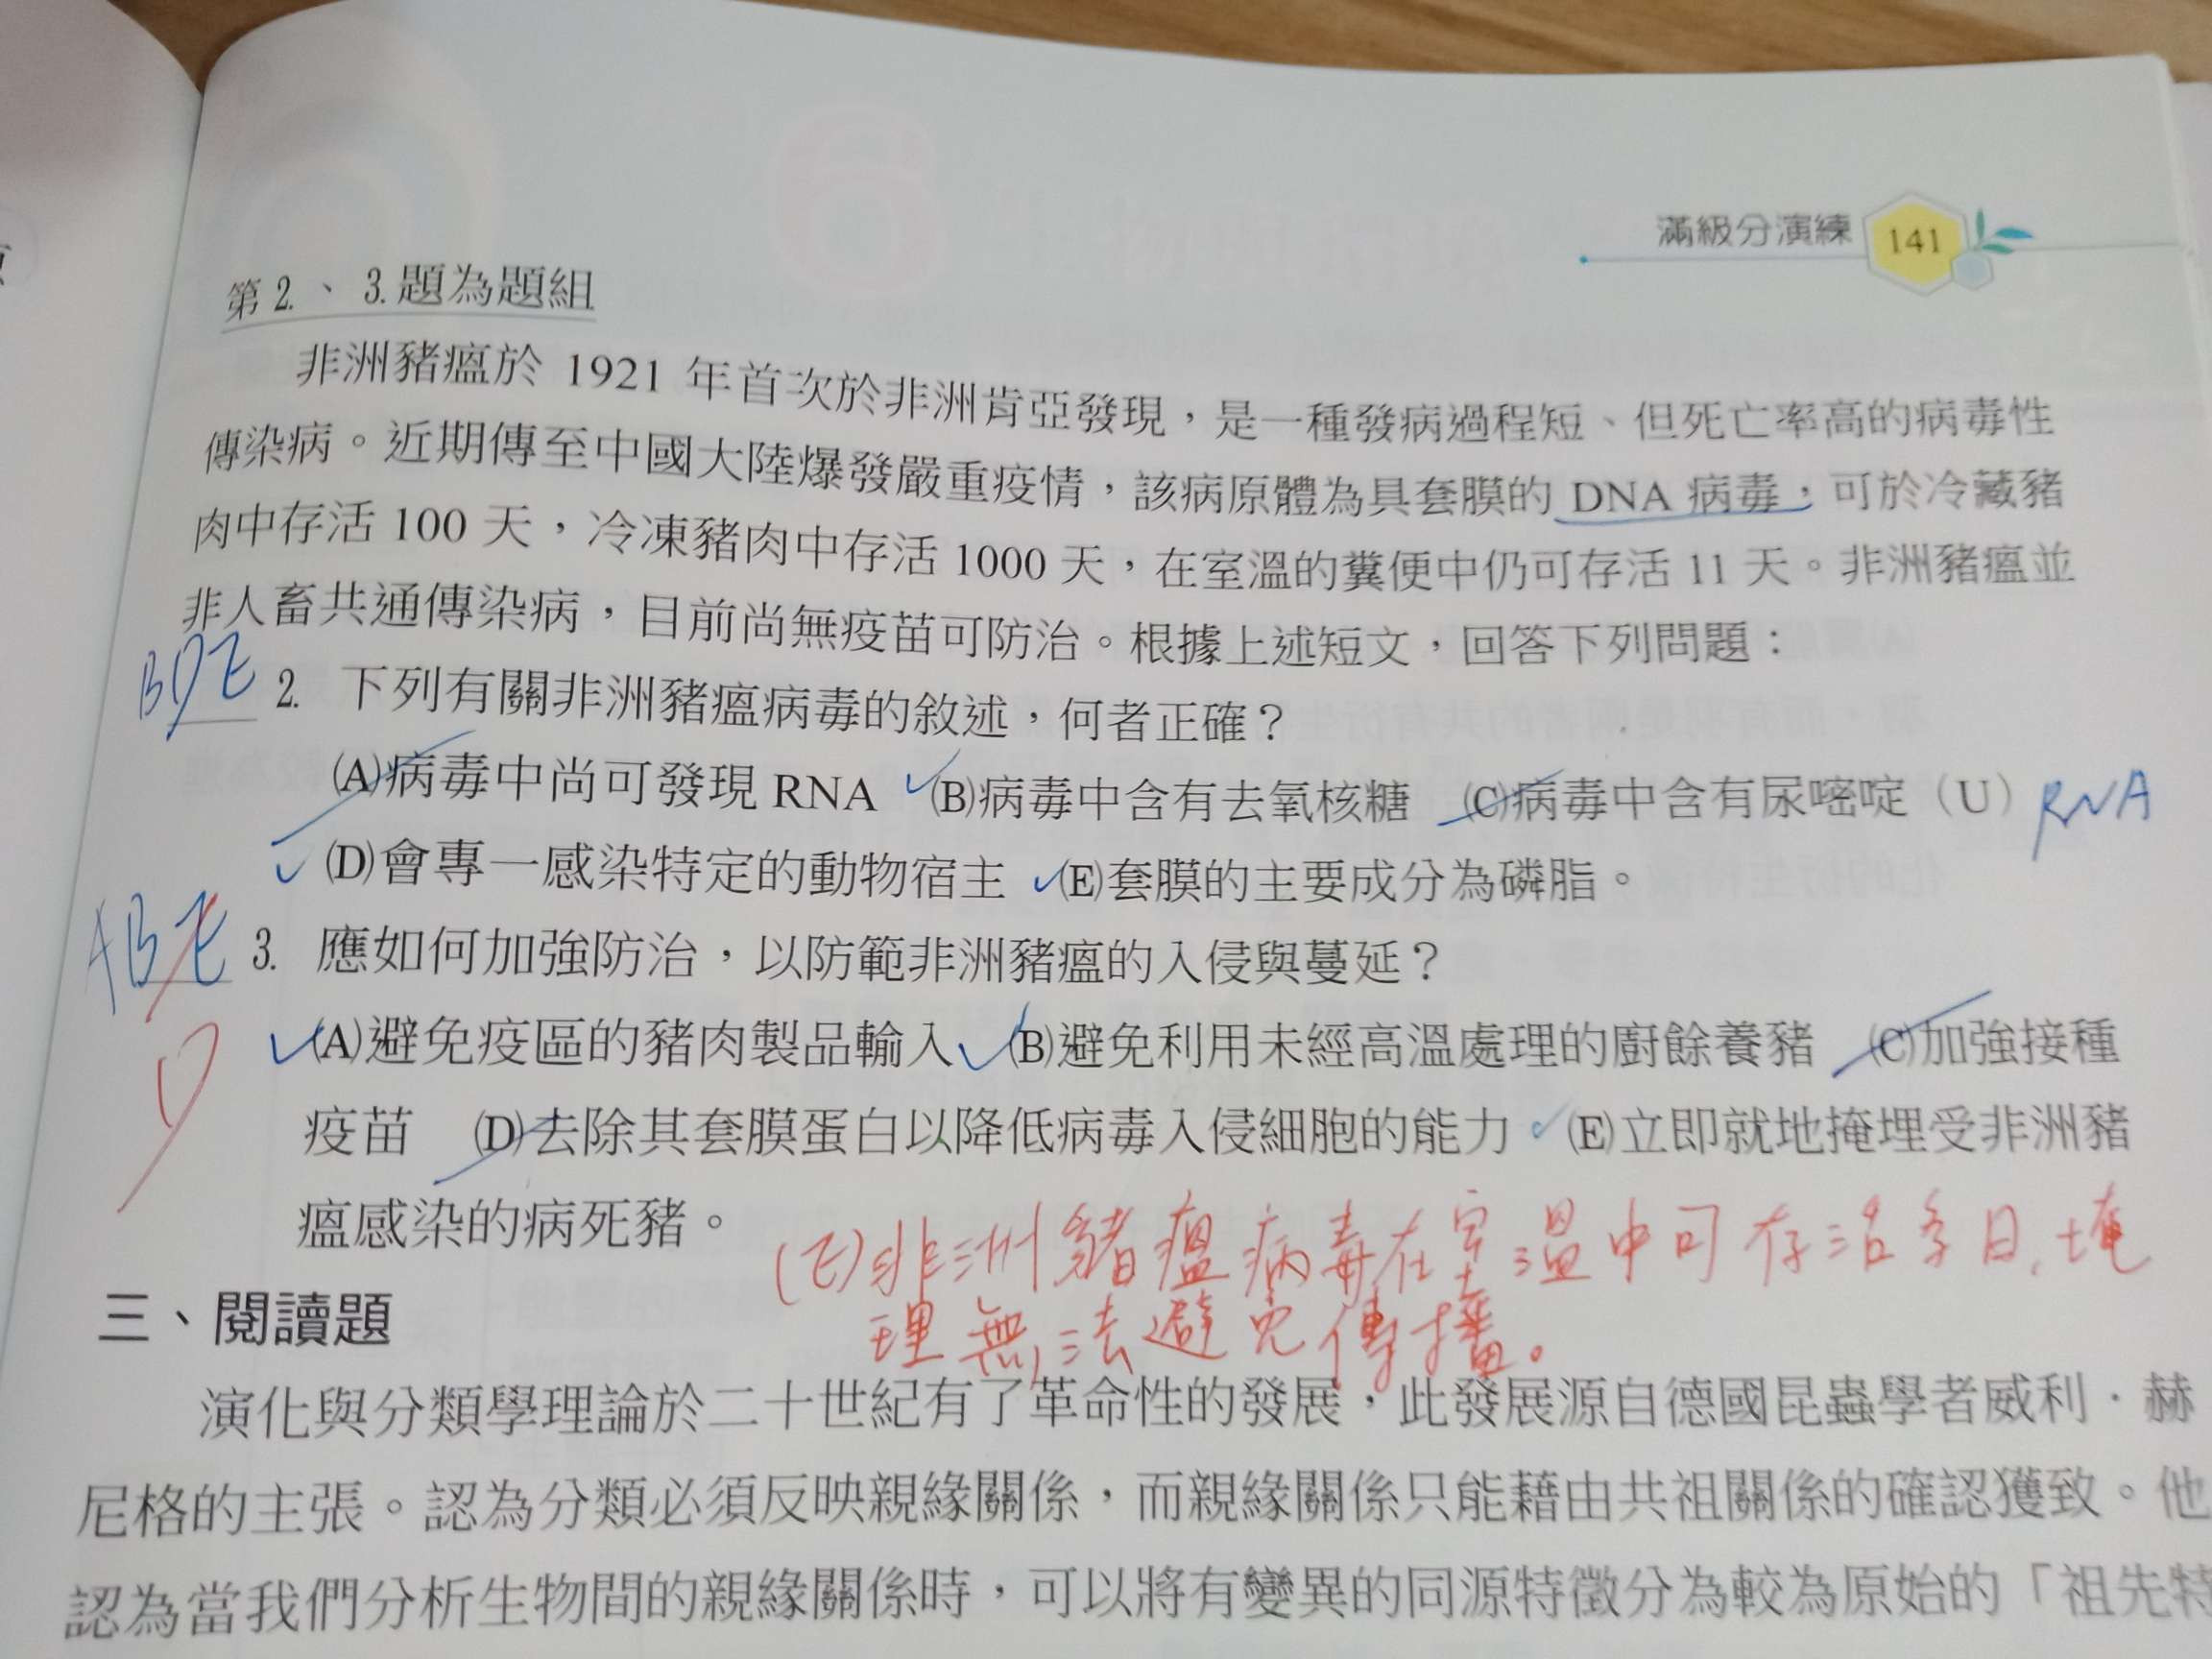 滿級分演練 141
第 2.、3.題為題組
非洲豬瘟於 1921 年首次於非洲肯亞發現，是一種發病過程短、但死亡率高的病毒性
傳染病。近期傳至中國大陸爆發嚴重疫情，該病原體為具套膜的 DNA 病毒，可於冷藏豬
肉中存活 100 天，冷凍豬肉中存活 1000 天，在室溫的糞便中仍可存活 11 天。非洲豬瘟並
非人畜共通傳染病，目前尚無疫苗可防治。根據上述短文，回答下列問題：
BDE 2. 下列有關非洲豬瘟病毒的敘述，何者正確？
(A)病毒中尚可發現 RNA (B)病毒中含有去氧核糖 (C)病毒中含有尿嘧啶（U） RNA
(D)會專一感染特定的動物宿主 (E)套膜的主要成分為磷脂。
ABE 3. 應如何加強防治，以防範非洲豬瘟的入侵與蔓延？
(A)避免疫區的豬肉製品輸入 (B)避免利用未經高溫處理的廚餘養豬 (C)加強接種
疫苗 (D)去除其套膜蛋白以降低病毒入侵細胞的能力 (E)立即就地掩埋受非洲豬
瘟感染的病死豬。
(E)非洲豬瘟病毒在室溫中可存活多日,掩
埋無法避免傳播。
三、閱讀題
演化與分類學理論於二十世紀有了革命性的發展，此發展源自德國昆蟲學者威利．赫
尼格的主張。認為分類必須反映親緣關係，而親緣關係只能藉由共祖關係的確認獲致。他
認為當我們分析生物間的親緣關係時，可以將有變異的同源特徵分為較為原始的「祖先特